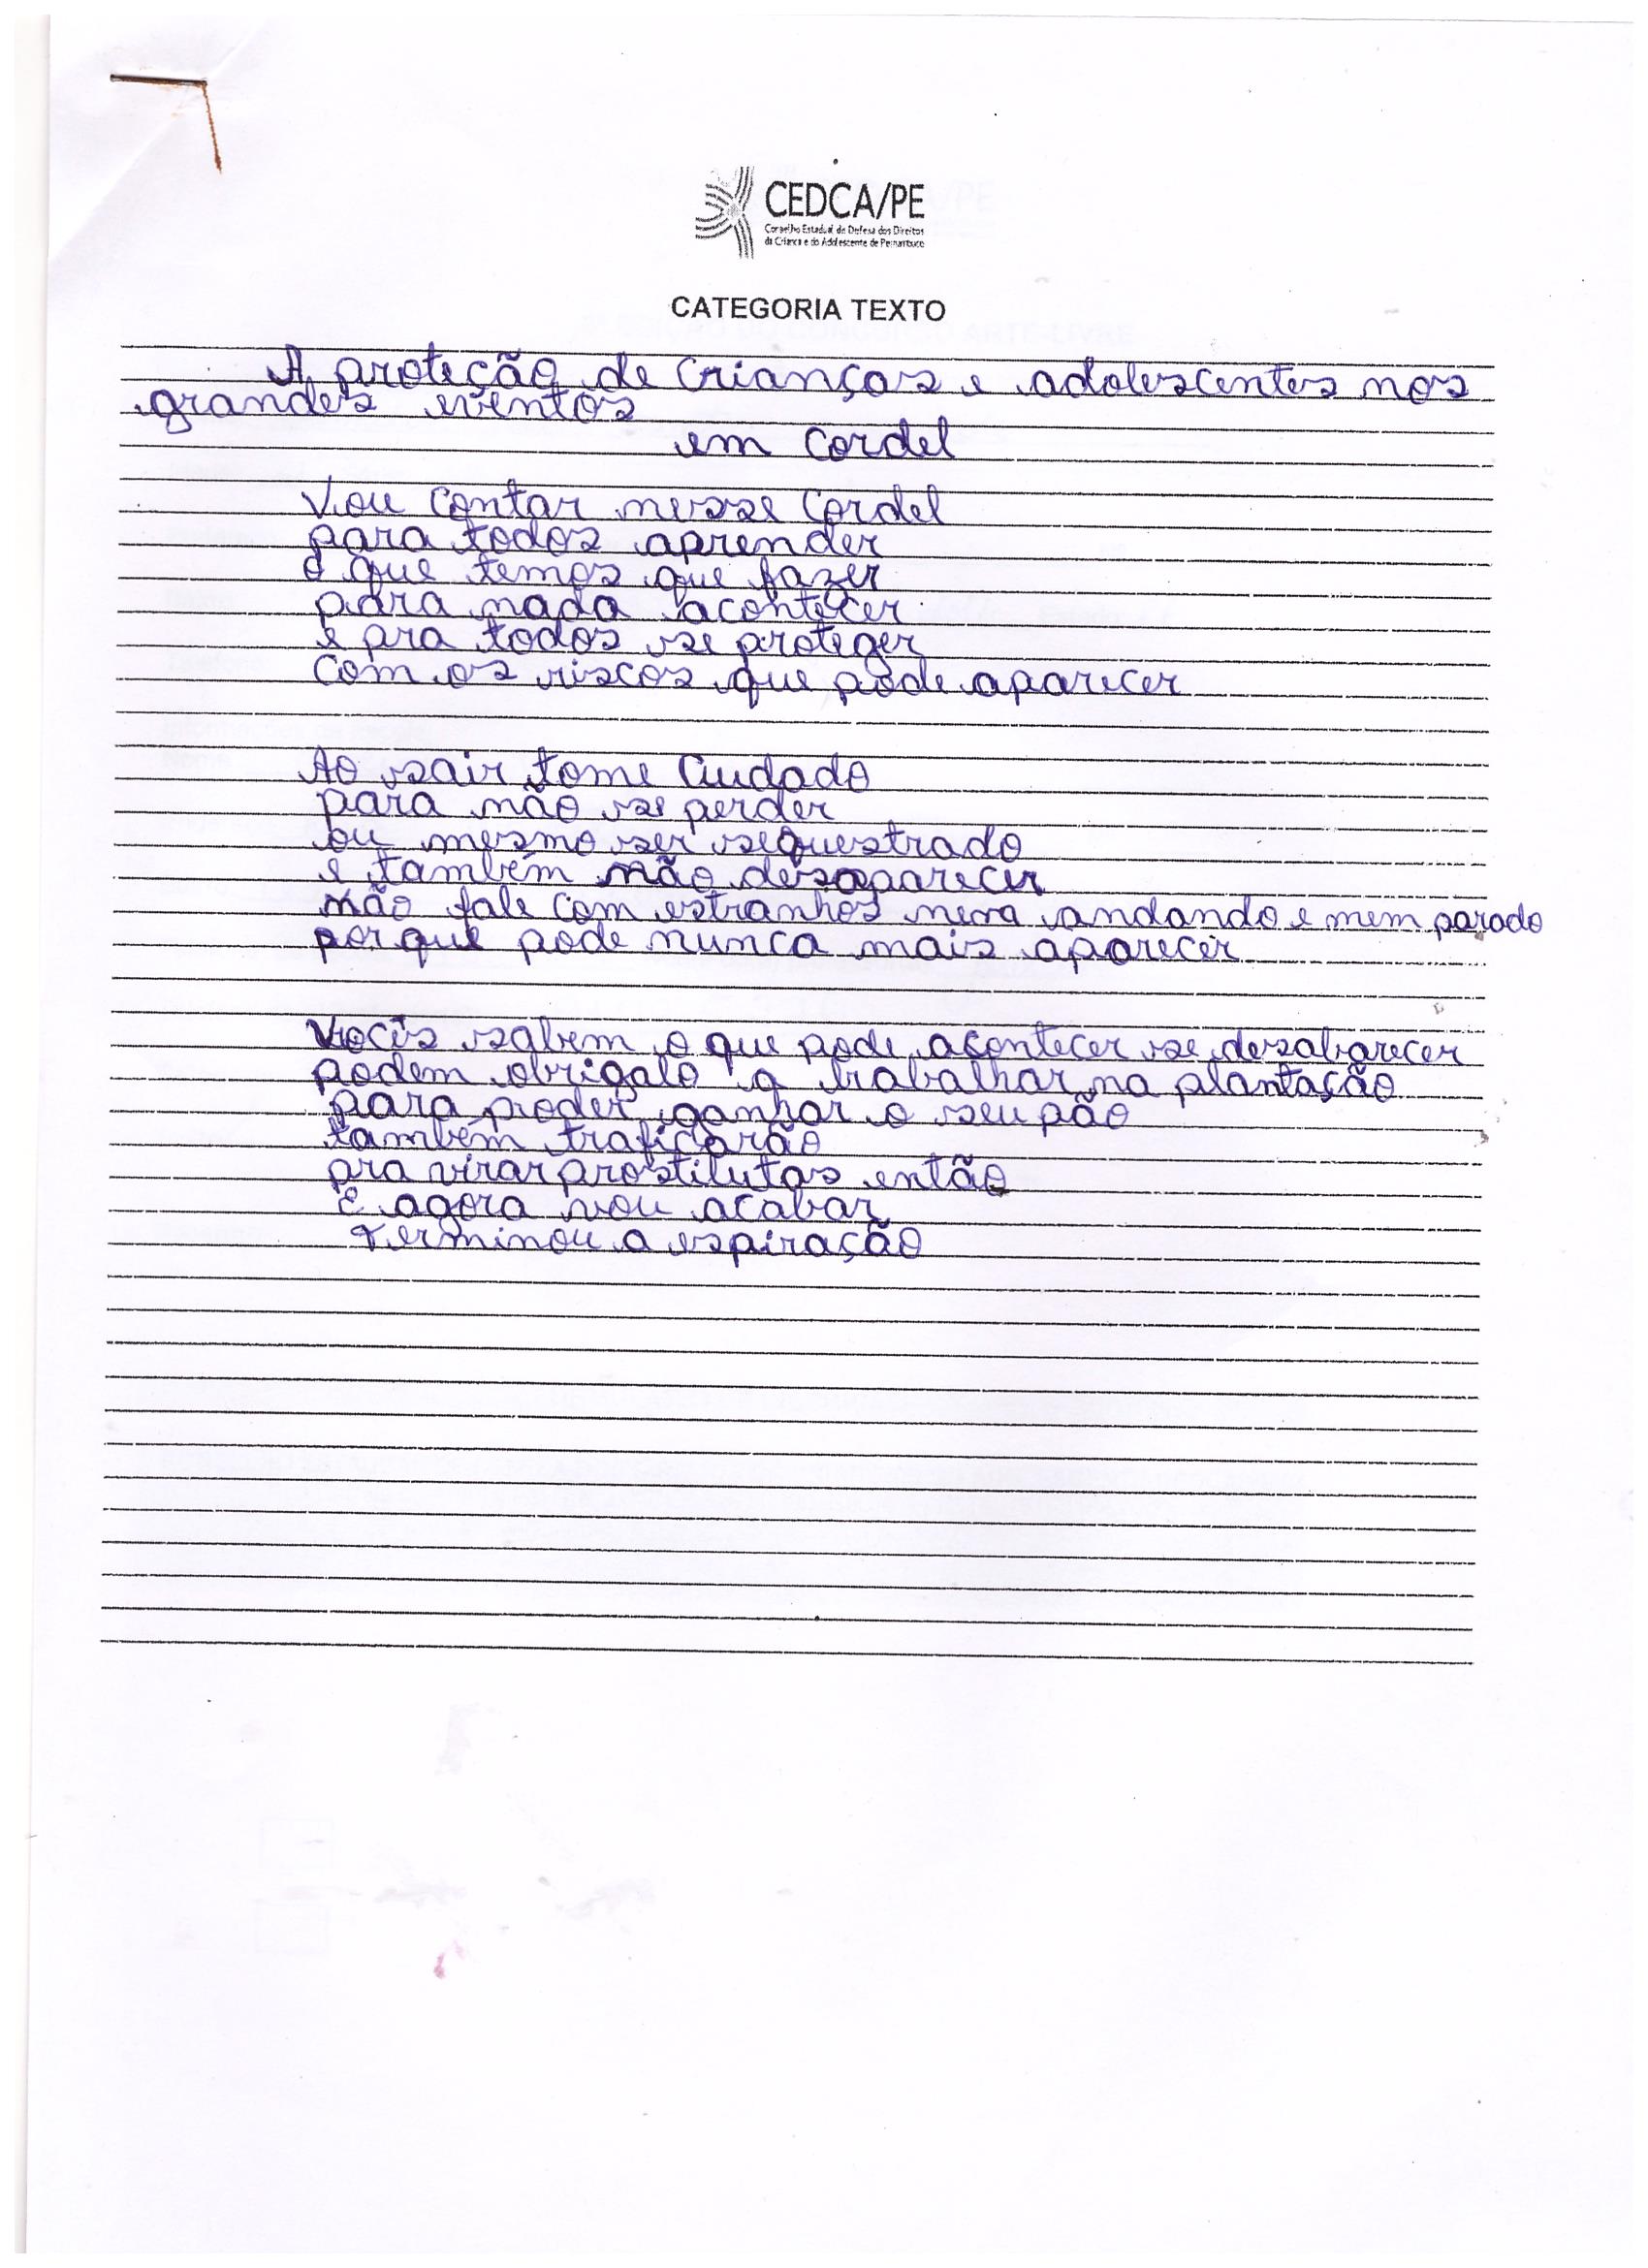 CEDCA/PE
Conselho Estadual de Defesa dos Direitos
da Criança e do Adolescente de Pernambuco
CATEGORIA TEXTO
A proteção de crianças e adolescentes nos
grandes eventos
em cordel
Vou contar nesse cordel
para todos aprender
o que temos que fazer
para nada acontecer
e pra todos se proteger
com os riscos que pode aparecer
Ao sair tome cuidado
para não se perder
ou mesmo ser sequestrado
e também não desaparecer
não fale com estranhos nem andando e nem parado
porque pode nunca mais aparecer
Vocês sabem o que pode acontecer se desabarecer
podem obrigalo a trabalhar na plantação
para poder ganhar o seu pão
também traficarão
pra virar prostitutas então
E agora vou acabar
terminou a espiração